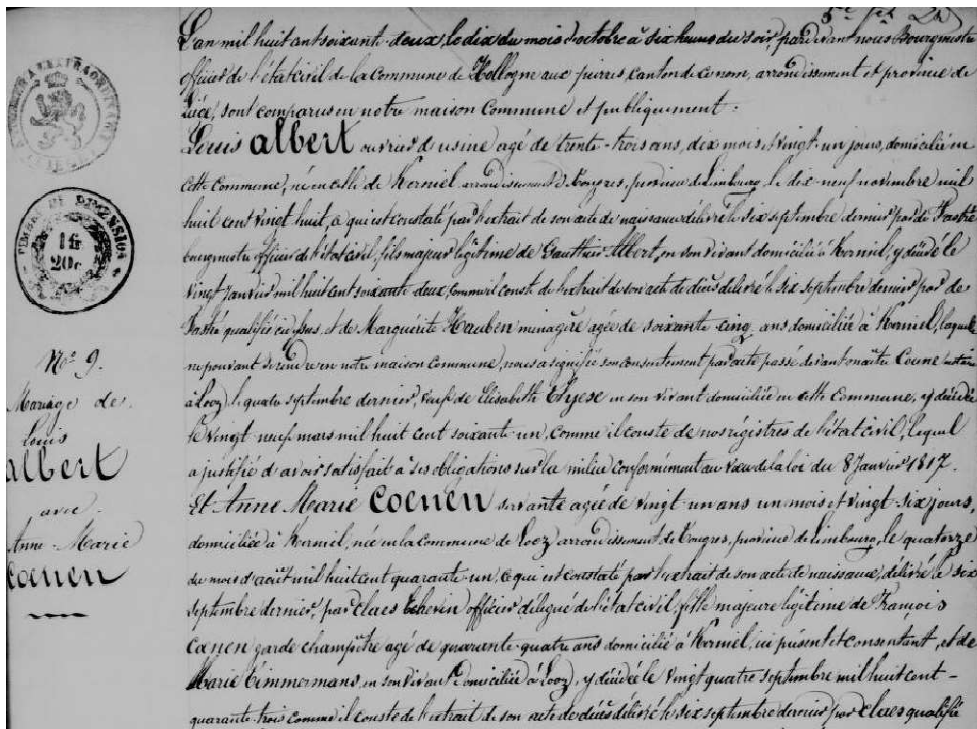 L'an mil huit cent soixante deux, le dix du mois d'octobre à six heures du soir, pardevant nous Bourgmestre
officier de l'état civil de la Commune de Hollogne aux pierres canton de ce nom, arrondissement et province de
Liége, sont comparus en notre maison Commune et publiquement.
Louis albert ouvrier d'usine agé de trente-trois ans, dix mois, et vingt-un jours, domicilié en
cette Commune, né en celle de Kerniel arrondissement de Tongres, province de Limbourg, le dix-neuf novembre mil
huit cent vingt huit, ce qui est constaté par l'extrait de son acte de naissance délivré le six septembre dernier par de Pastré
bourgmestre officier de l'état civil, fils majeur légitime de Gauthier Albert, en son vivant domicilié à Kerniel, y décédé le
vingt Janvier mil huit cent soixante deux, comme il conste de l'extrait de son acte de décès délivré le six septembre dernier par de
Pastré qualifié ci-dessus, et de Marguérite Hauben ménagère agée de soixante cinq ans domiciliée à Kerniel, laquelle
ne pouvant se rendre en notre maison Commune, nous a signifié son consentement par acte passé devant maître Coene notaire
à Looz le quatre septembre dernier, veuf de Elisabeth Thyese en son vivant domiciliée en cette Commune, y décédée
le vingt neuf mars mil huit cent soixante-un, comme il conste de nos régistres de l'état civil, lequel
a justifié d'avoir satisfait à ses obligations sur la milice conformément au vœu de la loi du 8 Janvier 1817.
Et Anne Marie Coenen servante agée de vingt-un ans un mois et vingt-six jours,
domiciliée à Kerniel, née en la Commune de Looz arrondissement de Tongres, province de Limbourg, le quatorze
du mois d'août mil huit cent quarante-un, ce qui est constaté par l'extrait de son acte de naissance, délivré le six
septembre dernier, par Claes Echevin officier délégué de l'état civil, fille majeure légitime de François
Coenen garde champêtre agé de quarante-quatre ans domicilié à Kerniel, ici présent et consentant, et de
Marie Timmermans, en son vivant domiciliée à Looz, y décédée le vingt quatre septembre mil huit cent-
quarante-trois comme il conste de l'extrait de son acte de décès délivré le six septembre dernier par Claes qualifié
TIMBRE DE DIMENSION
1 fr
20 c
No. 9.
Mariage de
Louis
albert
avec
Anne-Marie
Coenen